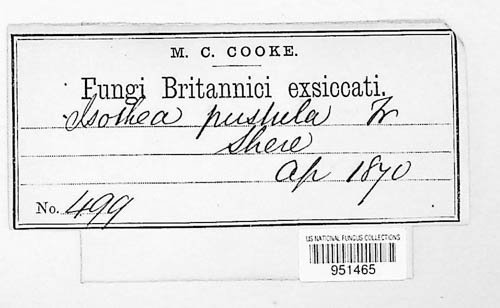 M. C. COOKE.
Fungi Britannici exsiccati.
Isothea pustula Fr
Shere
Ap 1870
No. 499
US NATIONAL FUNGUS COLLECTIONS
951465